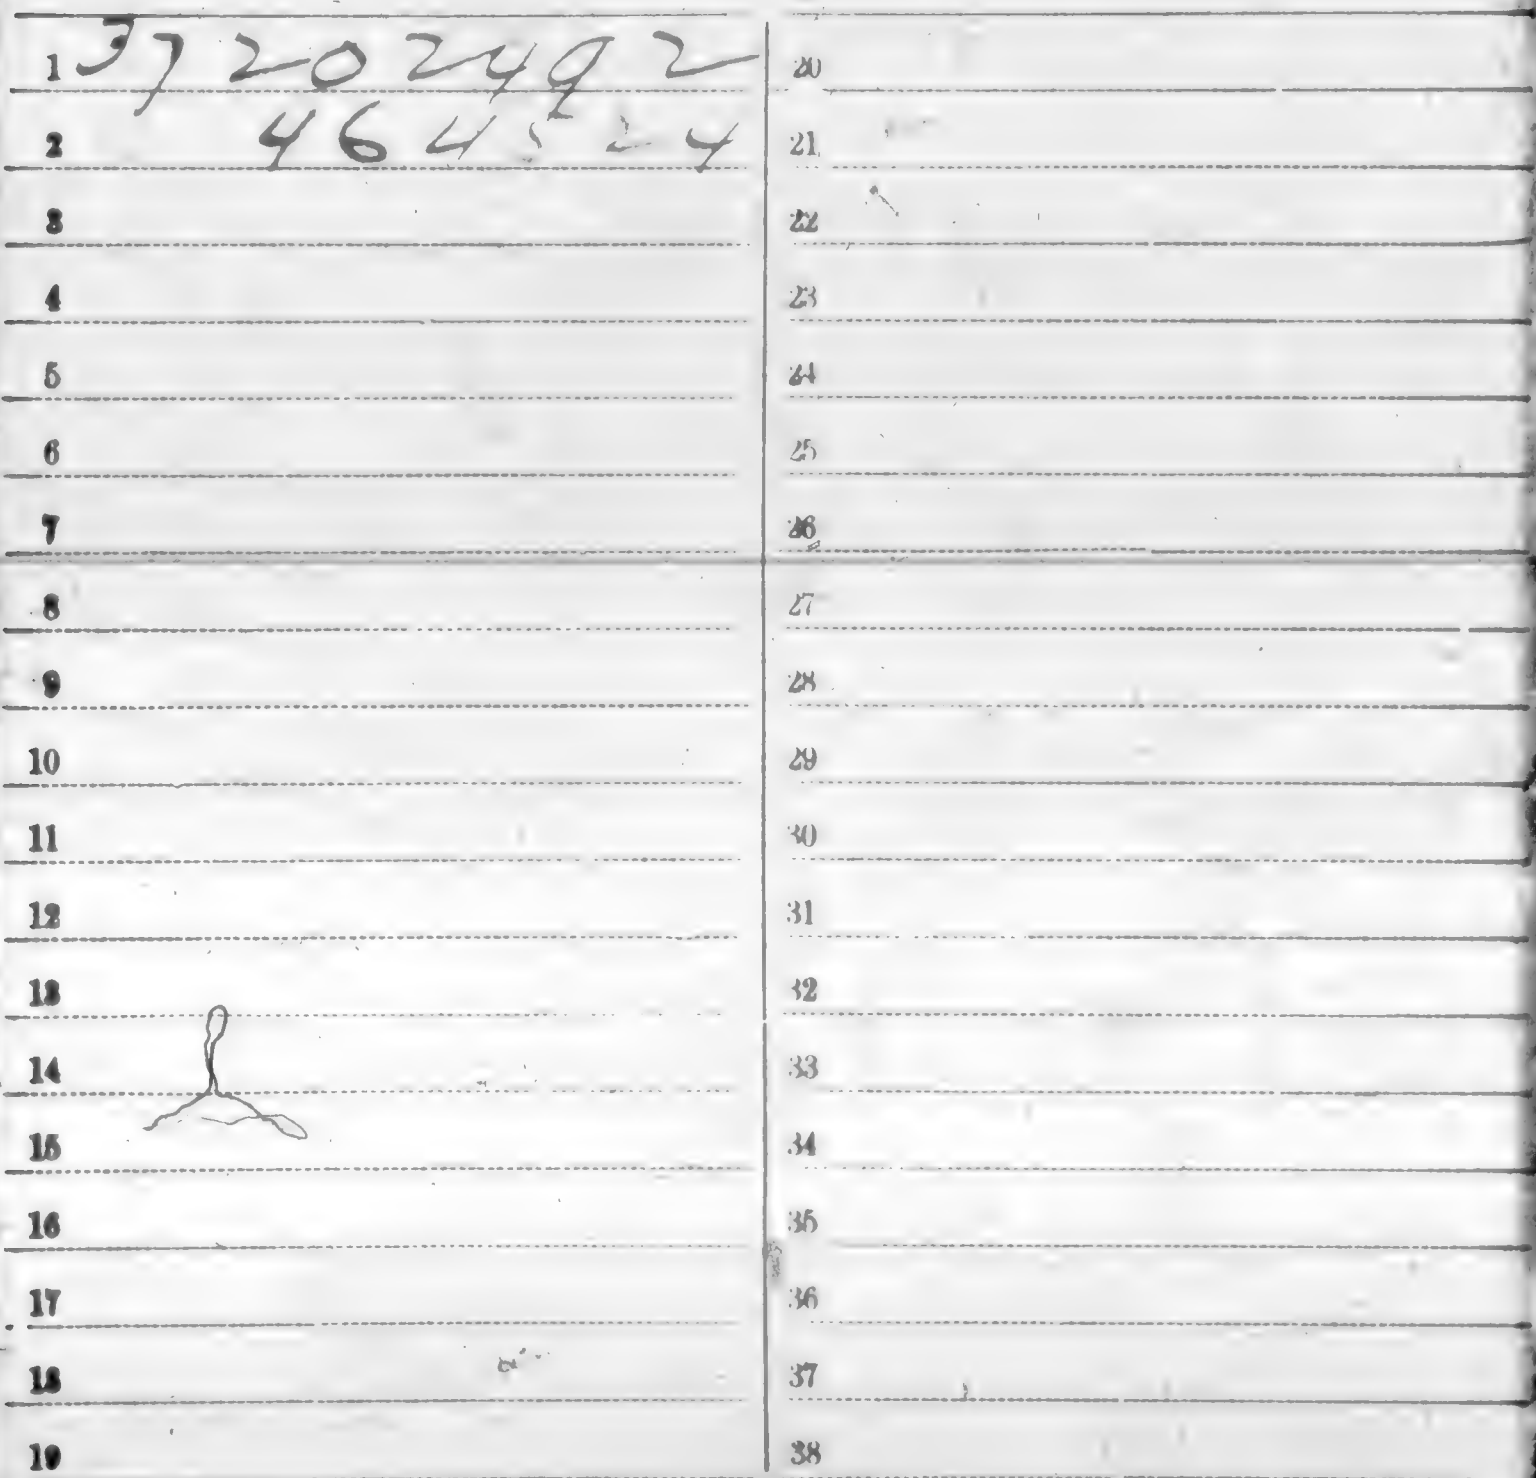 1 37 20 24 9 2
2 4 6 4 5 2 4
3
4
5
6
7
8
9
10
11
12
13
14
15
16
17
18
19
20
21
22
23
24
25
26
27
28
29
30
31
32
33
34
35
36
37
38